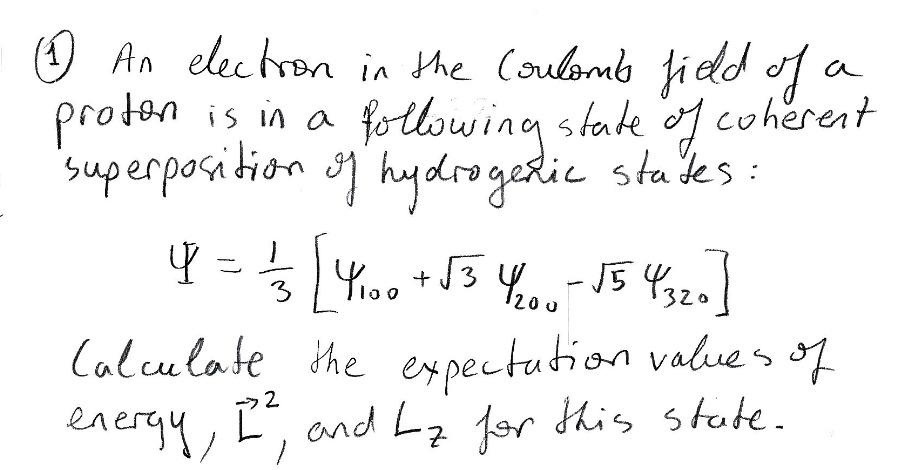 ① An electron in the Coulomb field of a
proton is in a following state of coherent
superposition of hydrogenic states:
Ψ = 1/3 [ψ₁₀₀ + √3 ψ₂₀₀ - √5 ψ₃₂₀]
Calculate the expectation values of
energy, L⃗², and L_z for this state.